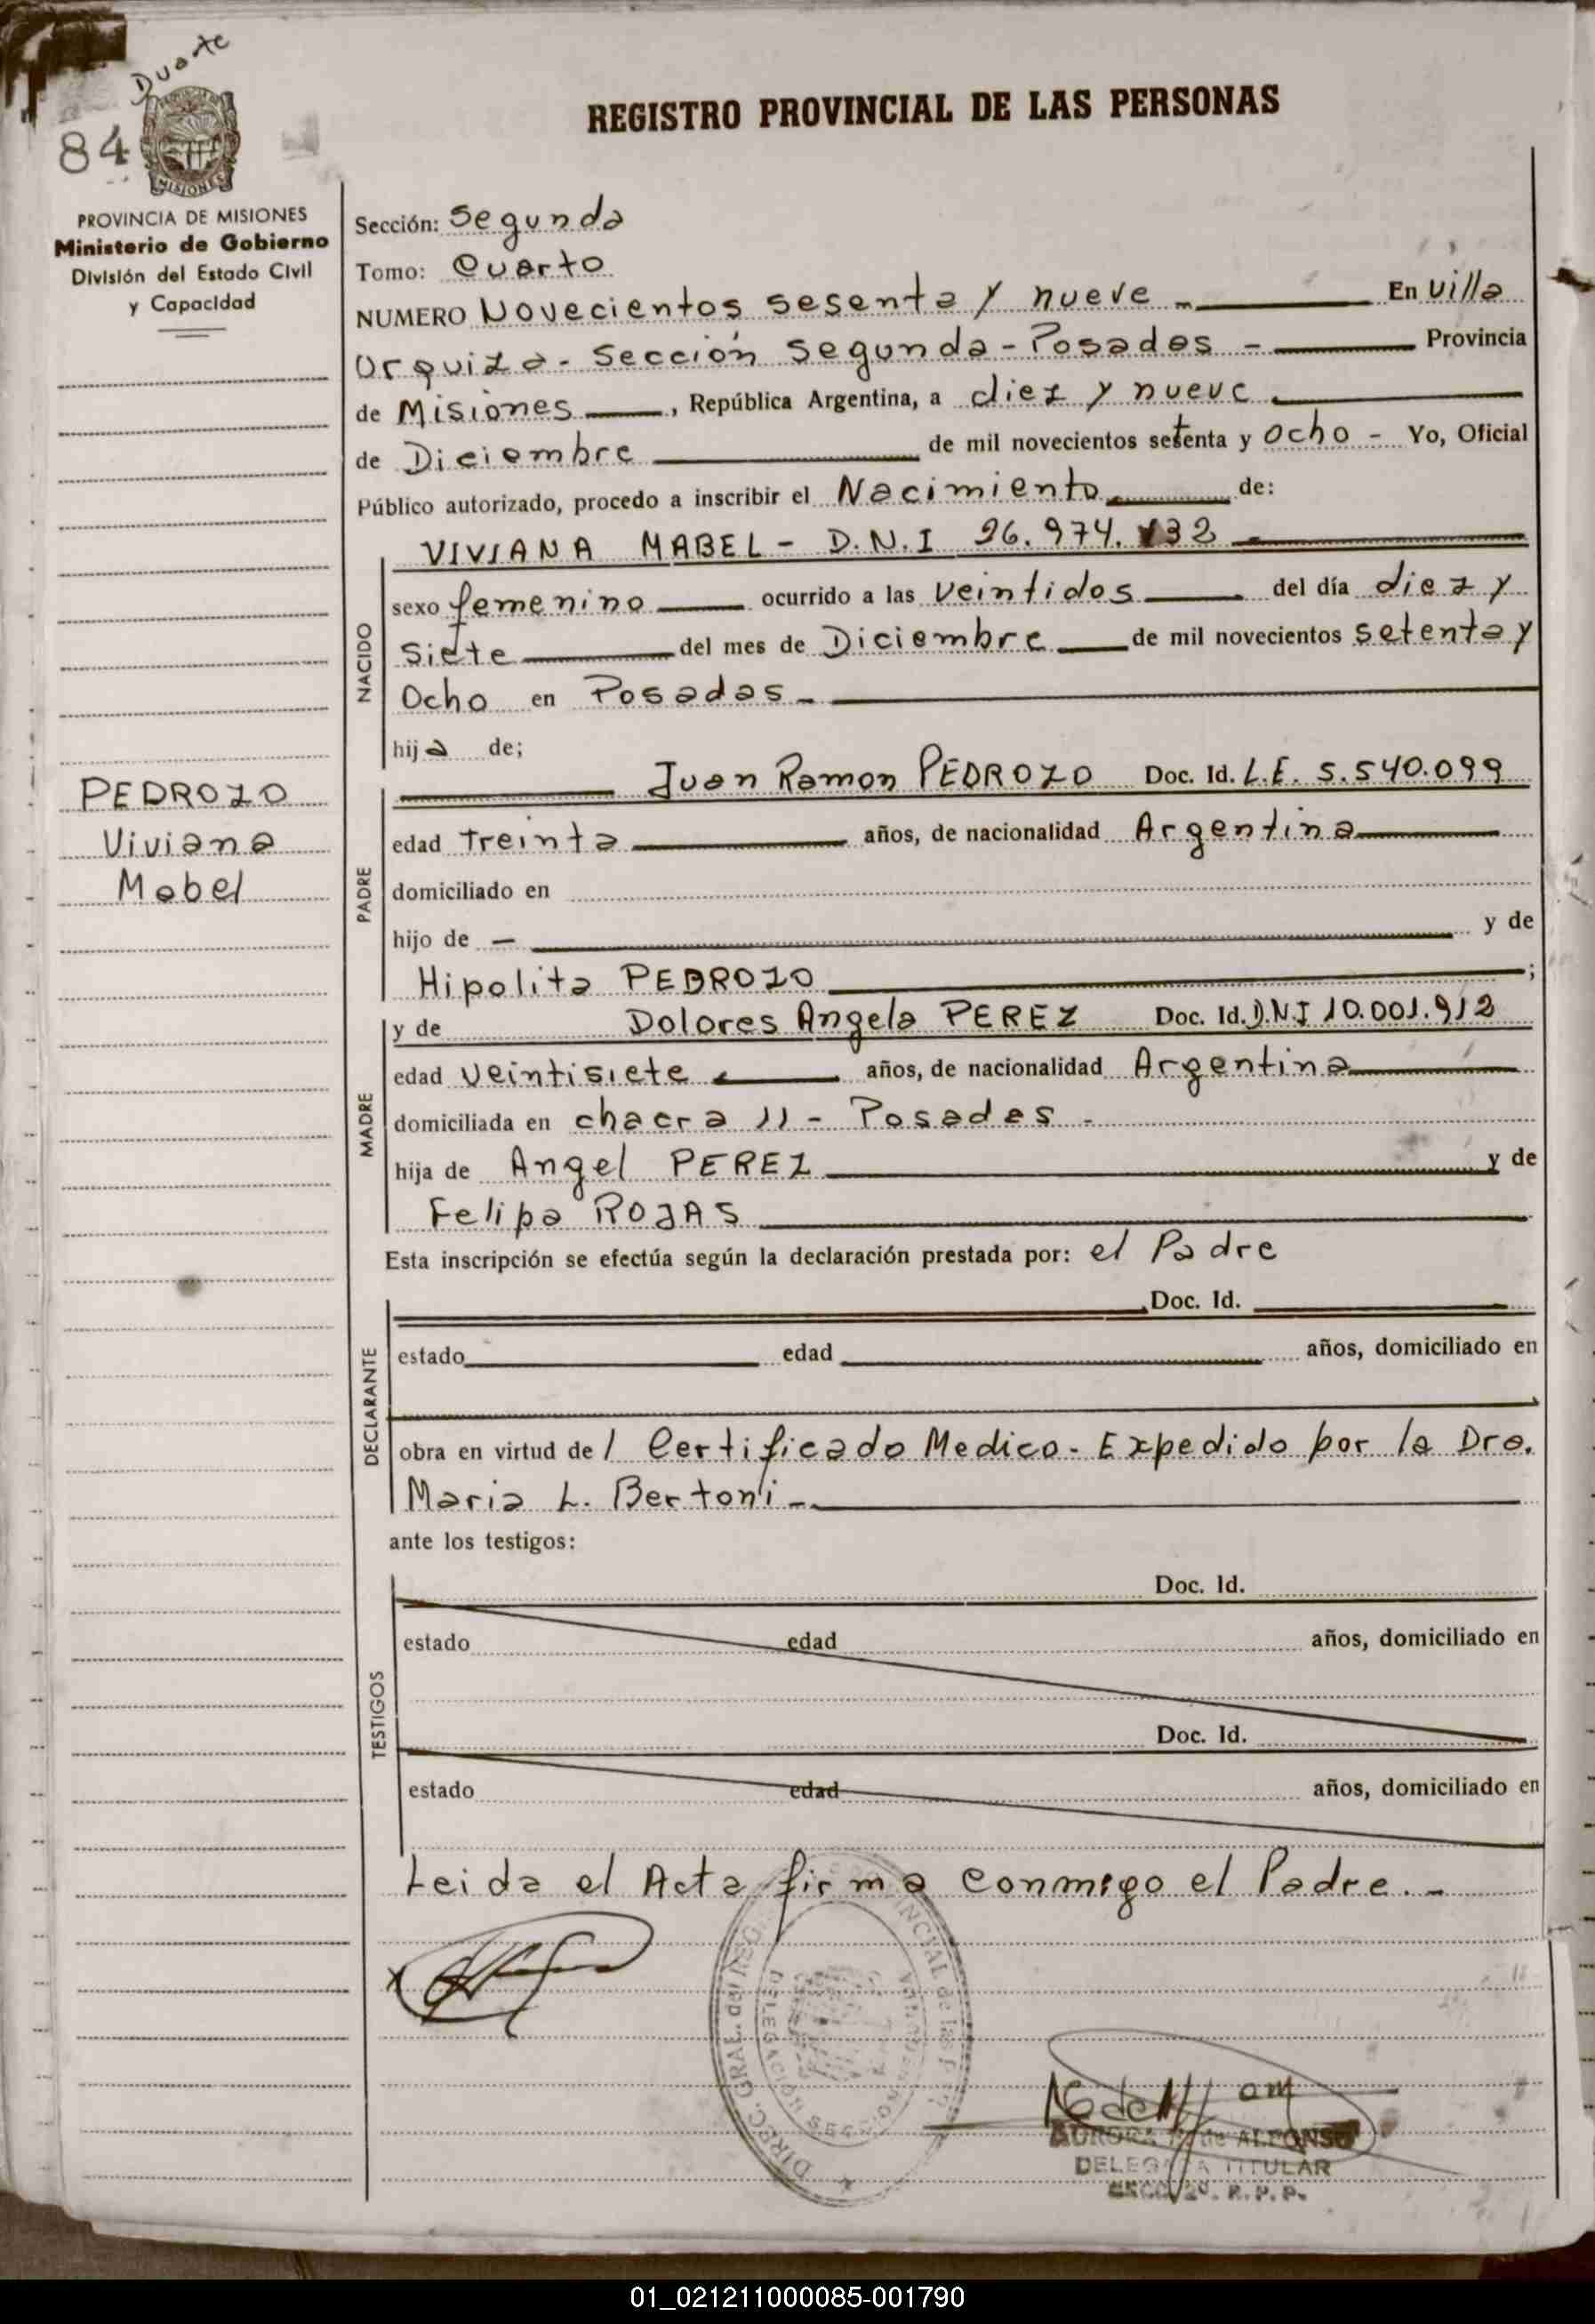 Duarte
84
MISIONES
PROVINCIA DE MISIONES
Ministerio de Gobierno
División del Estado Civil
y Capacidad
PEDROZO
Viviana
Mabel
REGISTRO PROVINCIAL DE LAS PERSONAS
Sección: Segunda
Tomo: Cuarto
NUMERO Novecientos sesenta y nueve - En Villa
Urquiza - Sección Segunda - Posadas - Provincia
de Misiones, República Argentina, a diez y nueve
de Diciembre de mil novecientos setenta y Ocho - Yo, Oficial
Público autorizado, procedo a inscribir el Nacimiento de:
NACIDO
VIVIANA MABEL - D.N.I 26.974.132
sexo femenino ocurrido a las veintidos del día diez y
siete del mes de Diciembre de mil novecientos setenta y
Ocho en Posadas -
hija de;
PADRE
Juan Ramon PEDROZO Doc. Id. L.E. 5.540.099
edad Treinta años, de nacionalidad Argentina
domiciliado en
hijo de - y de
Hipolita PEDROZO ;
MADRE
y de Dolores Angela PEREZ Doc. Id. D.N.I 10.001.912
edad veintisiete años, de nacionalidad Argentina
domiciliada en chacra 11 - Posadas -
hija de Angel PEREZ y de
Felipa ROJAS
Esta inscripción se efectúa según la declaración prestada por: el Padre
DECLARANTE
Doc. Id.
estado edad años, domiciliado en
obra en virtud de 1 Certificado Medico - Expedido por la Dra.
Maria L. Bertoni -
ante los testigos:
TESTIGOS
Doc. Id.
estado edad años, domiciliado en
Doc. Id.
estado edad años, domiciliado en
Leida el Acta firma conmigo el Padre. -
DIREC. GRAL. del PROVINCIAL de las
DELEGACION SECCION
AURORA de ALFONSO
DELEGADA TITULAR
SECC. 2º. R.P.P.
01_021211000085-001790